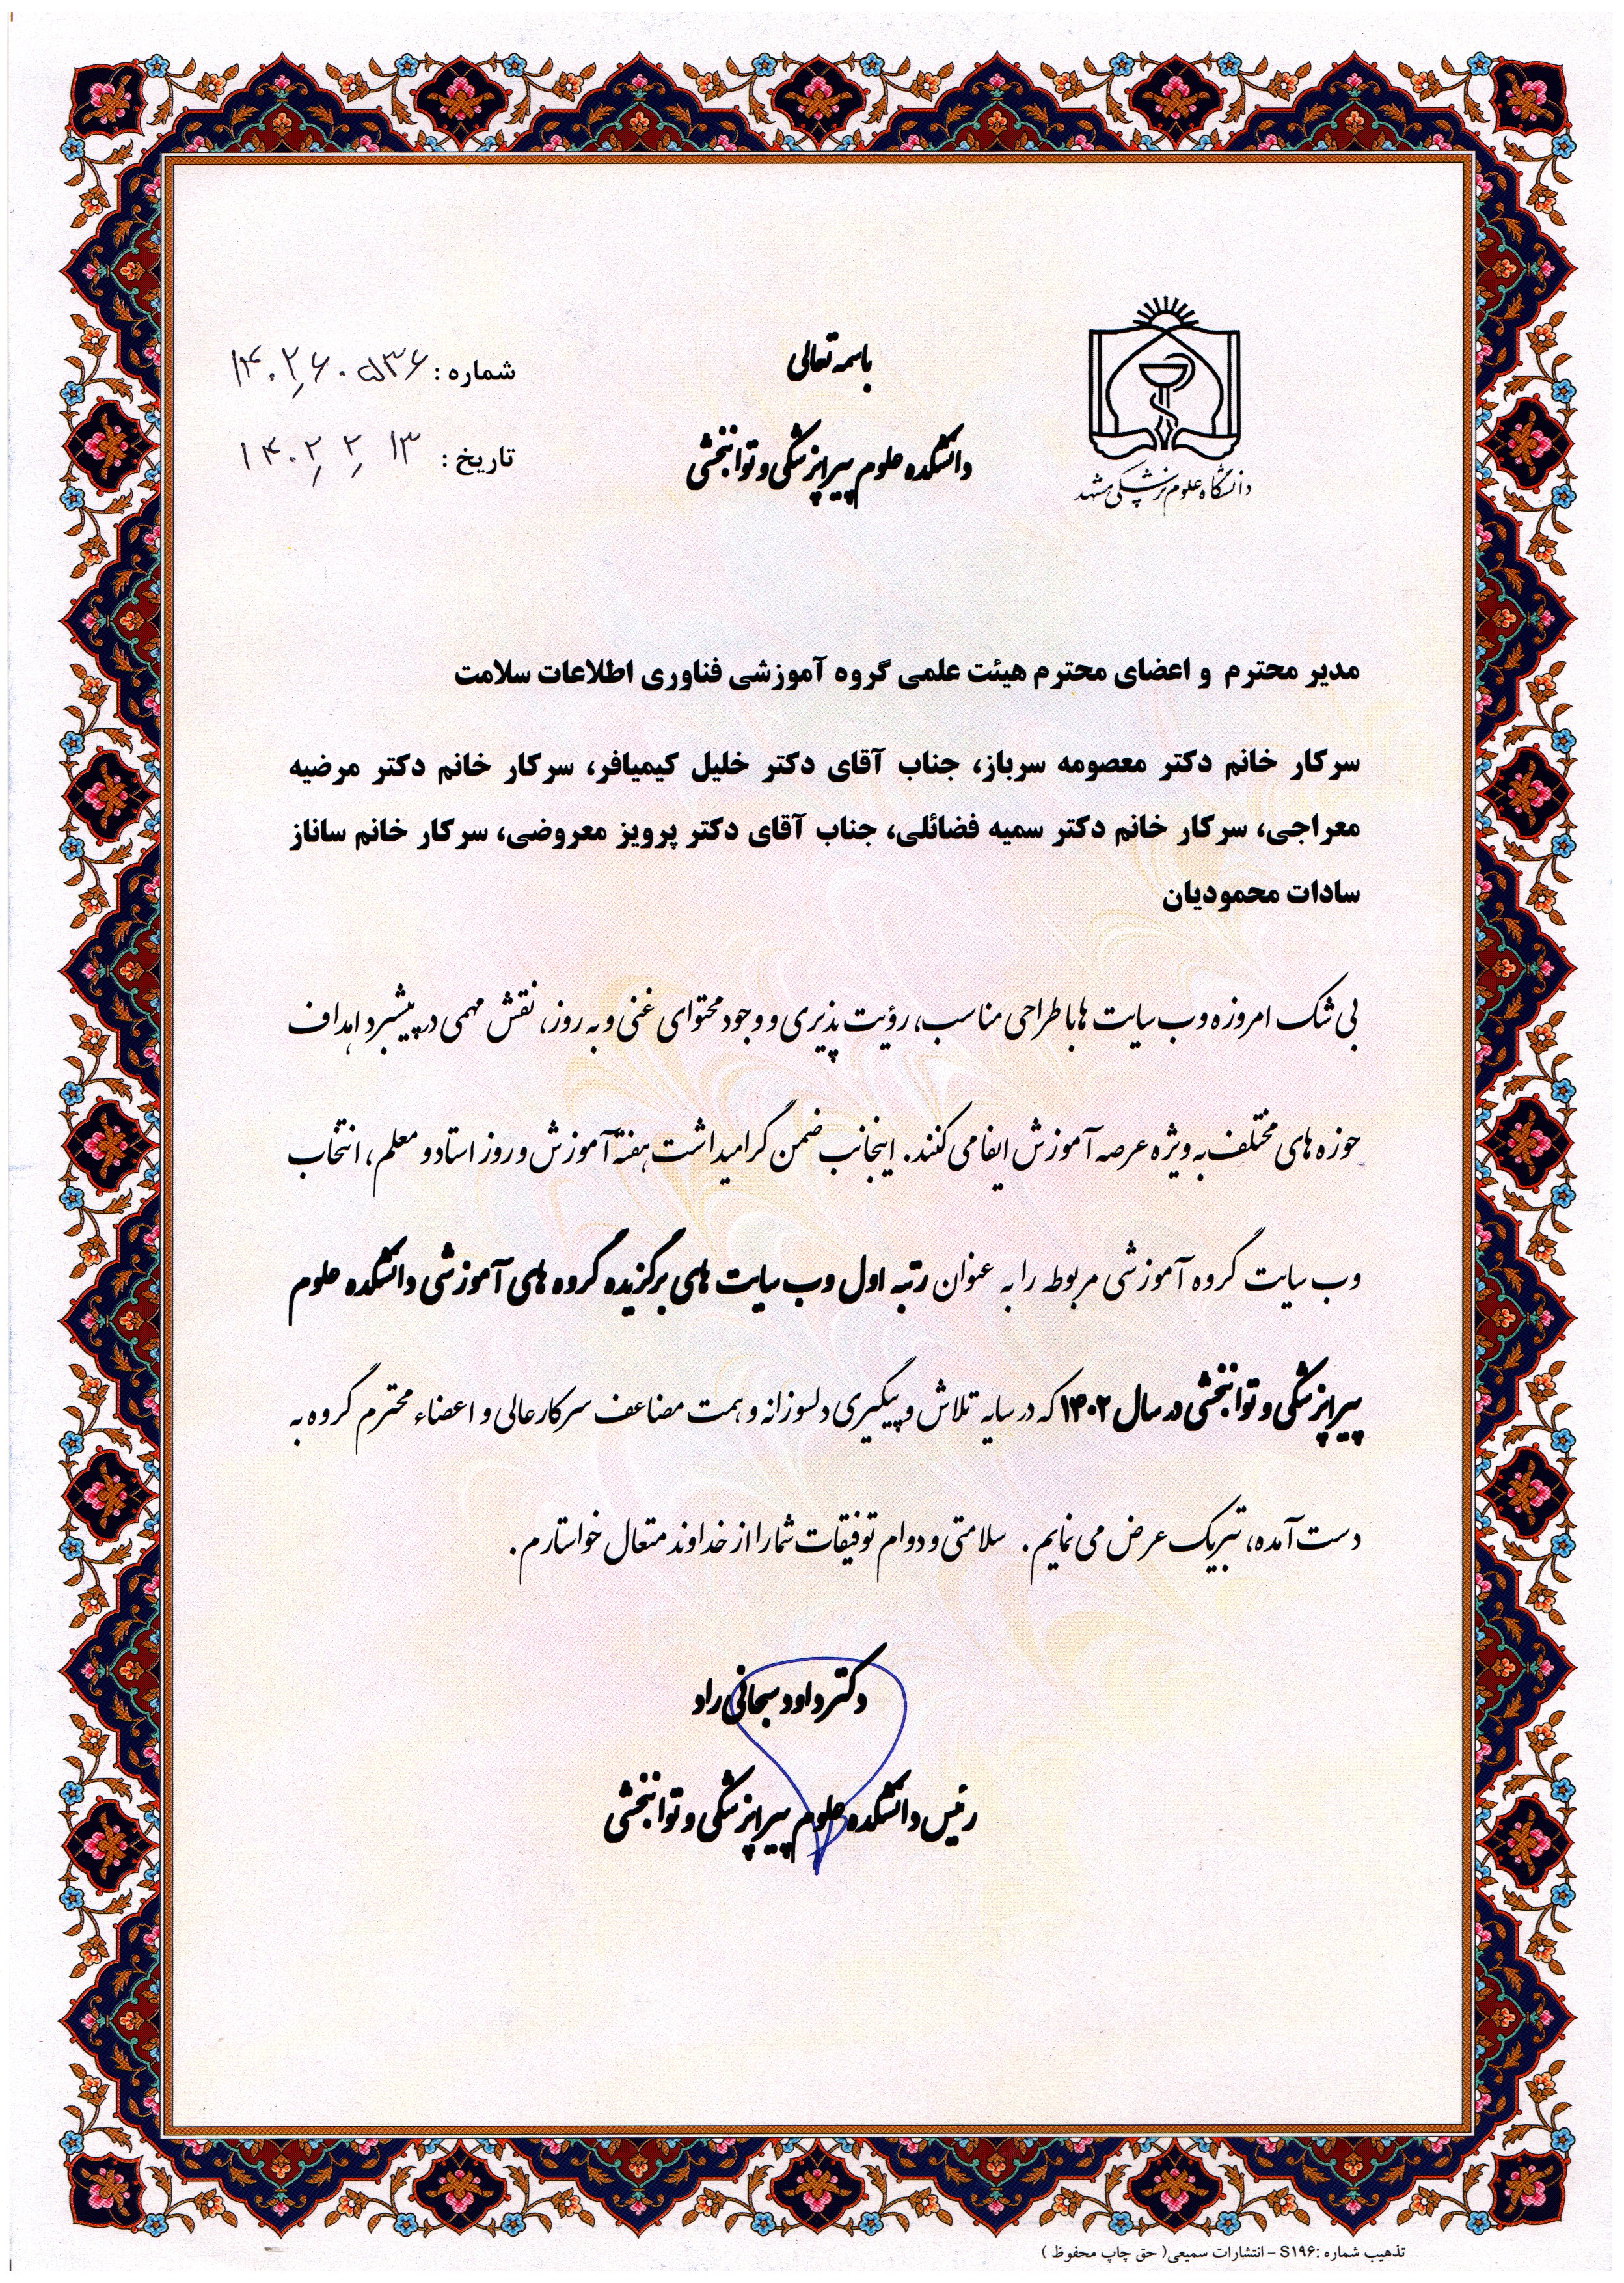 باسمه تعالی
دانشکده علوم پیراپزشکی و توانبخشی
دانشگاه علوم پزشکی مشهد
شماره :
تاریخ : ۱۴۰۲٫۲٫۱۳
مدیر محترم و اعضای محترم هیئت علمی گروه آموزشی فناوری اطلاعات سلامت
سرکار خانم دکتر معصومه سرباز، جناب آقای دکتر خلیل کیمیافر، سرکار خانم دکتر مرضیه
معراجی، سرکار خانم دکتر سمیه فضائلی، جناب آقای دکتر پرویز معروضی، سرکار خانم ساناز
سادات محمودیان
بی شک امروزه وب سایت ها با طراحی مناسب، رؤیت پذیری و وجود محتوای غنی و به روز، نقش مهمی در پیشبرد اهداف
حوزه های مختلف به ویژه عرصه آموزش ایفا می کنند. اینجانب ضمن گرامیداشت هفته آموزش و روز استاد و معلم، انتخاب
وب سایت گروه آموزشی مربوطه را به عنوان رتبه اول وب سایت های برگزیده گروه های آموزشی دانشکده علوم
پیراپزشکی و توانبخشی در سال ۱۴۰۲ که در سایه تلاش و پیگیری دلسوزانه و همت مضاعف سرکارعالی و اعضاء محترم گروه به
دست آمده، تبریک عرض می نمایم. سلامتی و دوام توفیقات شما را از خداوند متعال خواستارم.
دکتر داود سبحانی راد
رئیس دانشکده علوم پیراپزشکی و توانبخشی
تذهیب شماره :S۱۹۶ - انتشارات سمیعی( حق چاپ محفوظ )